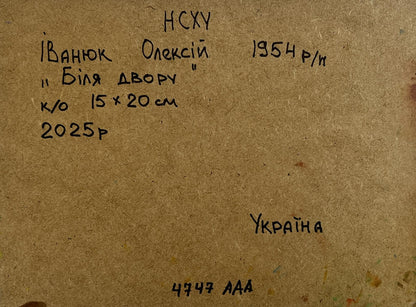 НСХУ
Іванюк Олексій 1954 р/н
„ Біля двору "
к/о 15 × 20 см
2025р
Україна
4747 АДА